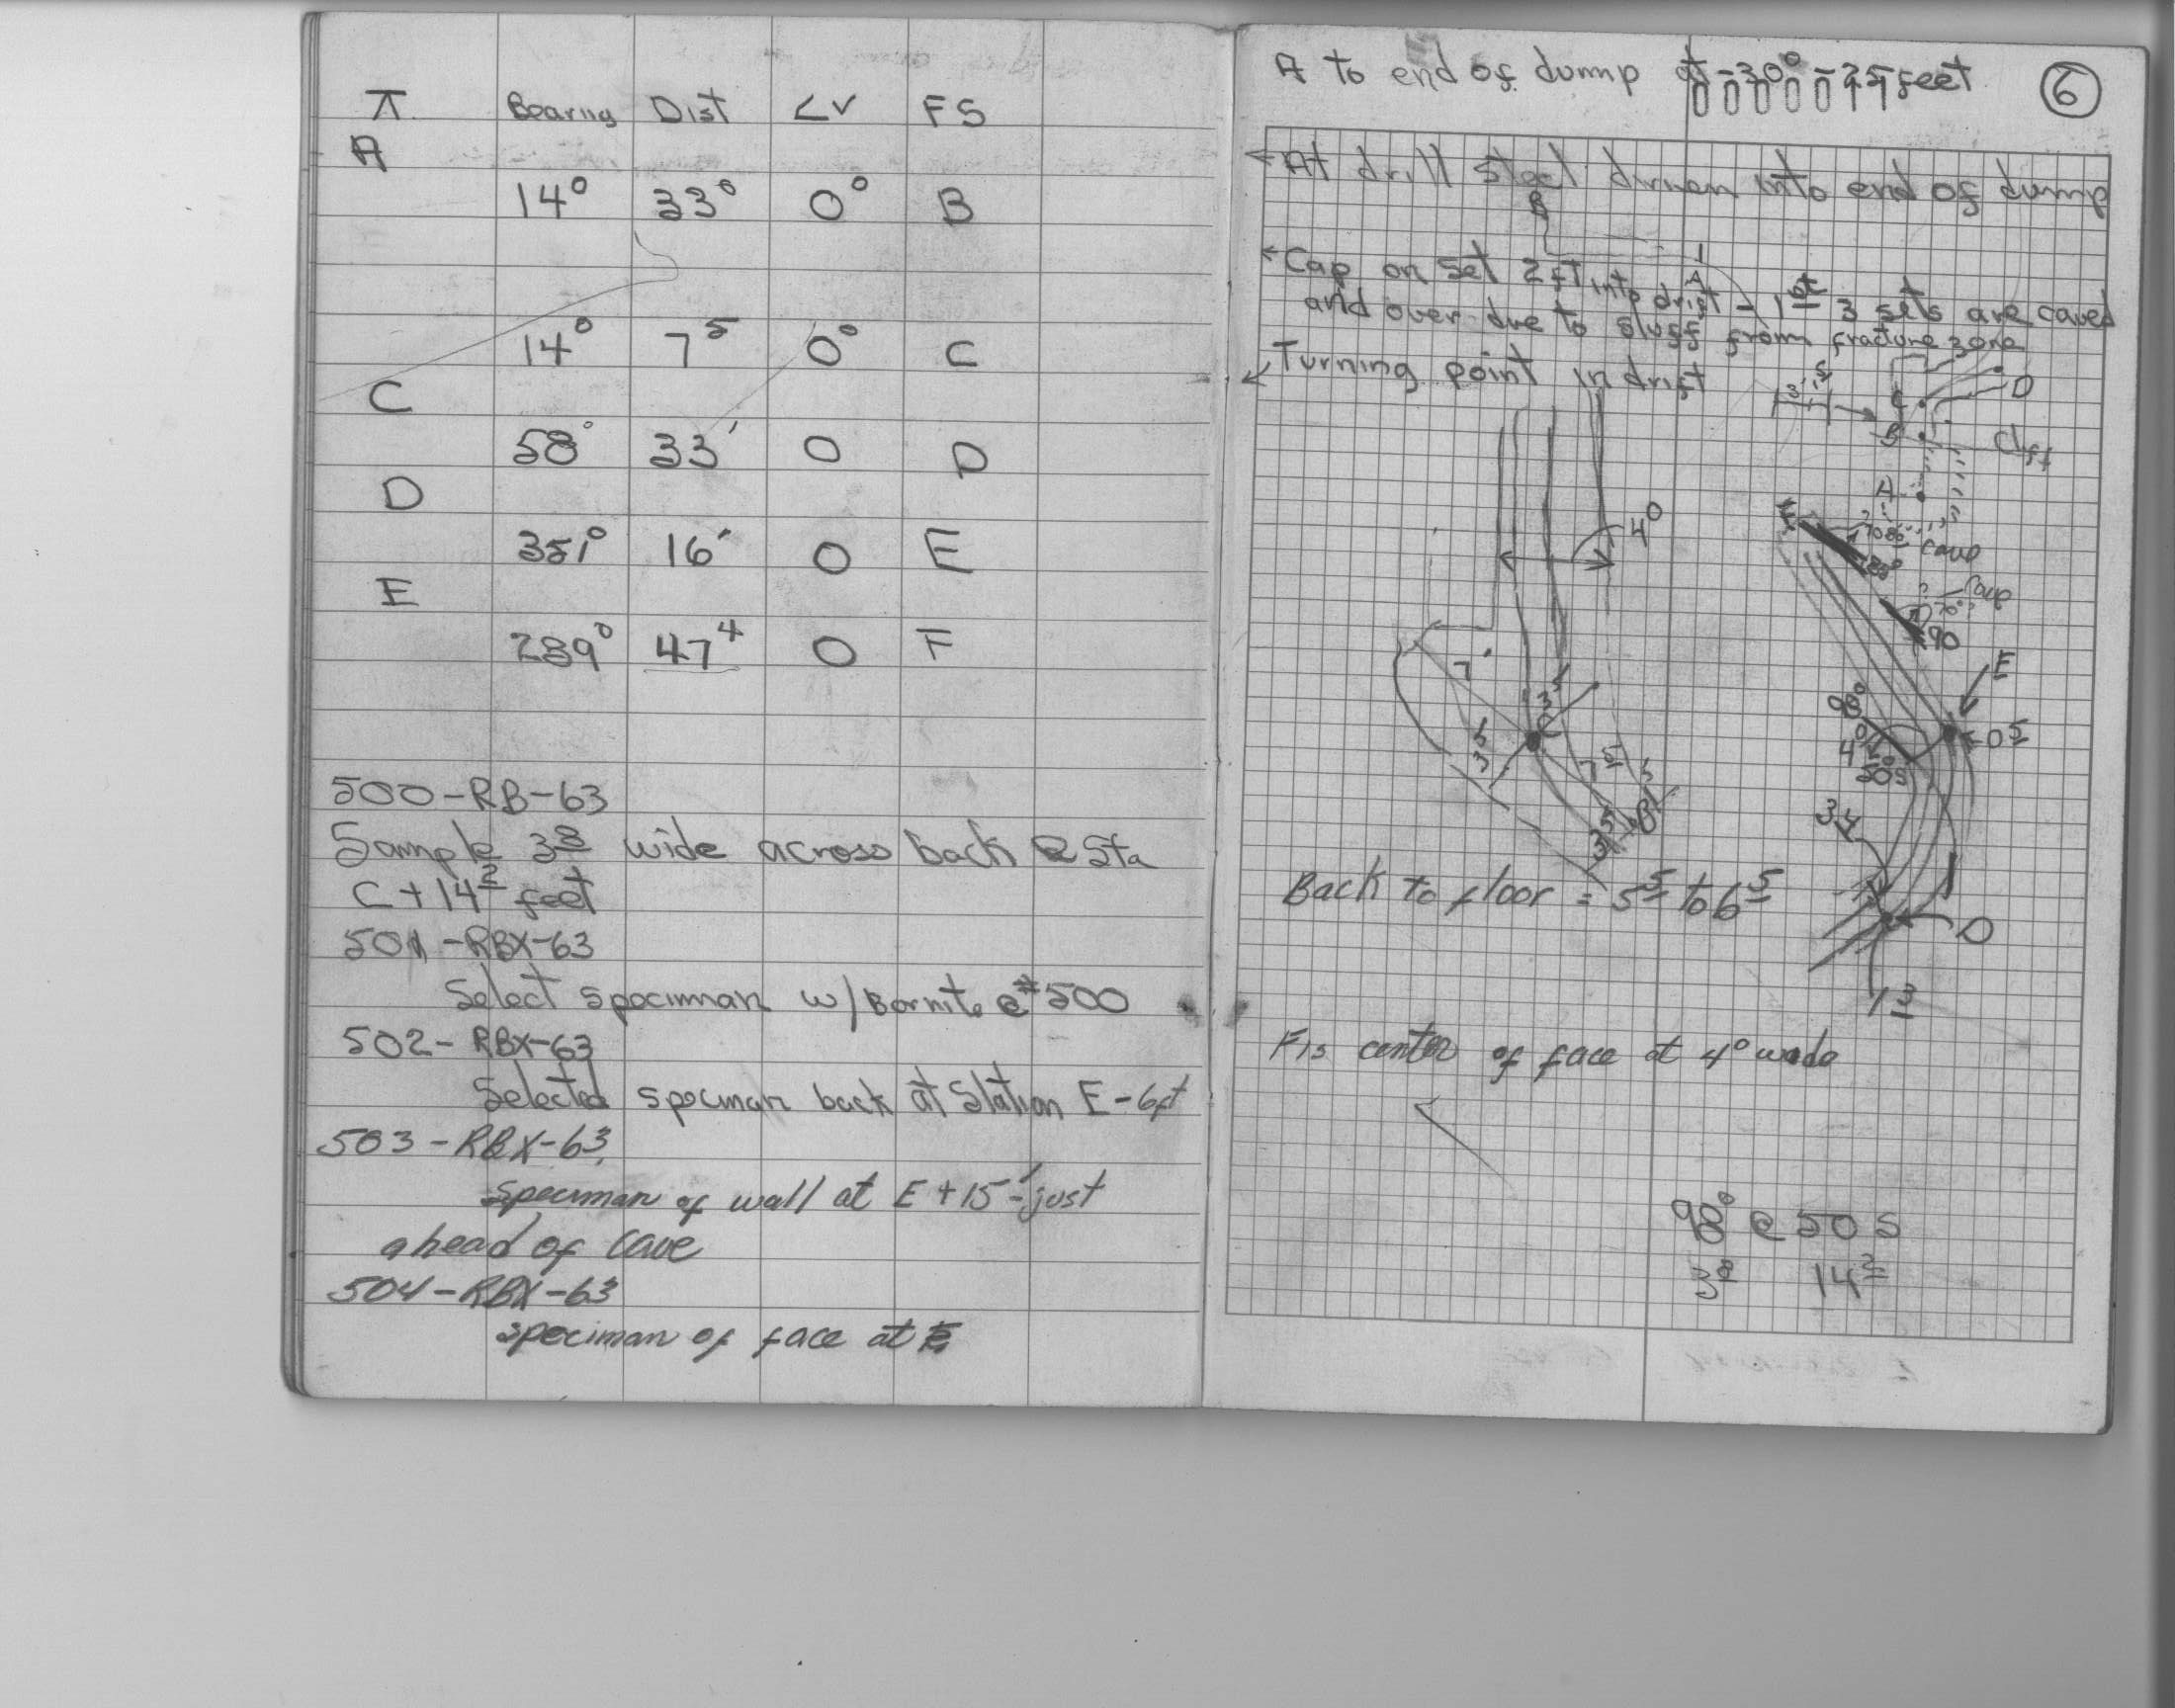 π Bearing Dist ∠V FS
A
14° 33⁰ 0° B
14° 7⁵ 0° C
C
58° 33' 0 D
D
351° 16' 0 E
E
289° 47⁴ 0 F
500-RB-63
Sample 3⁸ wide across back @ Sta
C + 14² feet
501-RBX-63
Select speciman w/Bornite @ #500
502-RBX-63
Selected speciman back at Station E-6ft
503-RBX-63
speciman of wall at E+15'-just
ahead of cave
504-RBX-63
speciman of face at F
A to end of dump at -30° -25 feet
0000011
6
←At drill steel driven into end of dump
B
←Cap on set 2ft into drift - 1st 3 sets are caved
A
and over due to sluff from fracture zone
↙Turning point in drift
3'⁵
C
D
B
Cliff
A
4⁰
F
70°
cave
80°
cave
70°
90
7'
3⁵
C
3⁵
7⁵
3⁵
B
E
98°
0⁵
4⁰
50S
3.4
D
1³
Back to floor = 5⁵ to 6⁵
F is center of face at 4⁰ wide
98° @ 50 S
3⁸ 14²